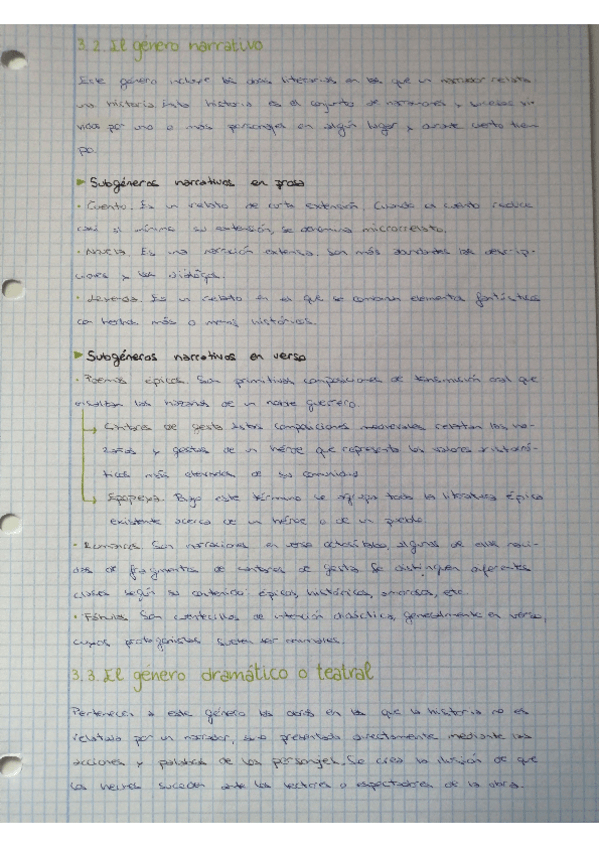 3.2. El género narrativo
Este género incluye las obras literarias en las que un narrador relata
una historia. Esta historia es el conjunto de narraciones y sucesos vi-
vidos por uno o más personajes en algún lugar y durante cierto tiem-
po.
▸ Subgéneros narrativos en prosa
· Cuento. Es un relato de corta extensión. Cuando un cuento reduce
casi al mínimo su extensión, se denomina microrrelato.
· Novela. Es una narración extensa. Son más abundantes las descrip-
ciones y los diálogos.
· Leyenda. Es un relato en el que se combinan elementos fantásticos
con hechos más o menos históricos.
▸ Subgéneros narrativos en verso
· Poemas épicos. Son primitivas composiciones de transmisión oral que
exaltan las hazañas de un noble guerrero.
Cantares de gesta. Estas composiciones medievales relatan las ha-
zañas y gestas de un héroe que representa los valores
más de su comunidad
Epopeya. Bajo este término se agrupa toda la literatura épica
existente acerca de un héroe o de un pueblo
· Romances. Son narraciones en verso octosílabo, algunas de ellas naci-
das de fragmentos de cantares de gesta. Se distinguen diferentes
clases según su contenido: épicos, históricos, amorosos, etc.
· Fábula. Son cuentecillos de intención didáctica, generalmente en verso,
cuyos protagonistas suelen ser animales.
3.3. El género dramático o teatral
Pertenecen a este género las obras en las que la historia no es
relatada por un narrador, sino presentada directamente mediante las
acciones y palabras de los personajes. Se crea la ilusión de que
los hechos suceden ante los lectores o espectadores de la obra.